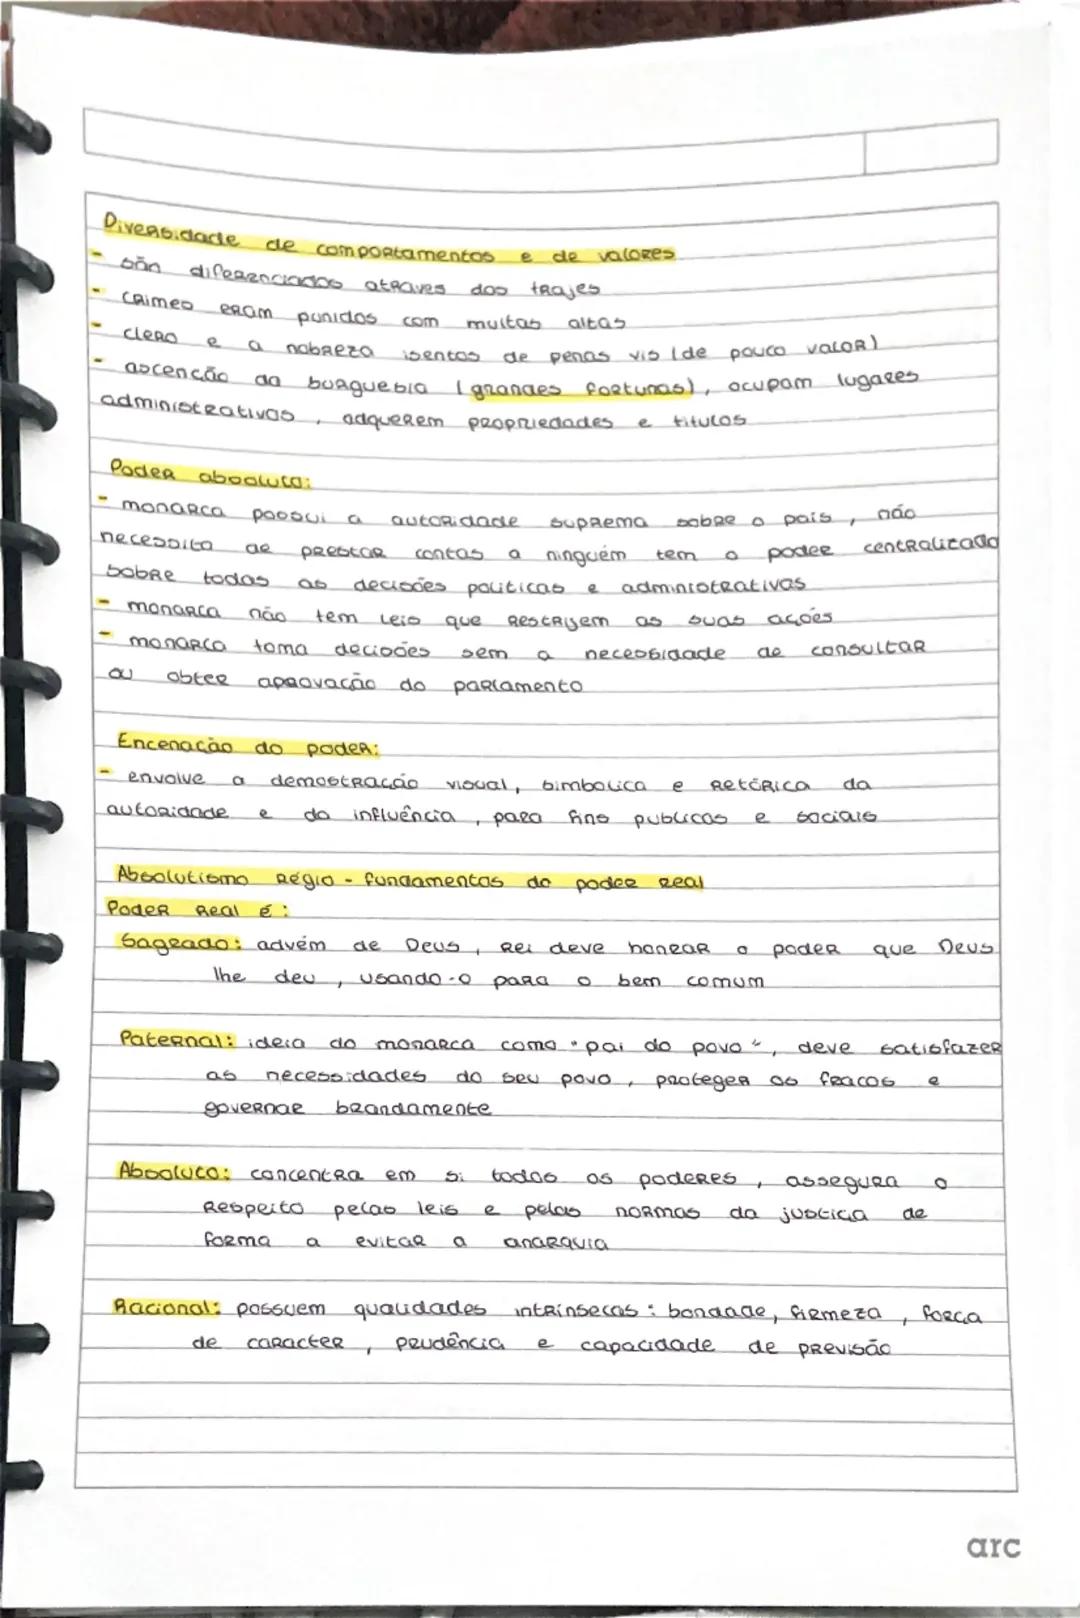 Diversidade de comportamentos e de valores
- são diferenciados atraves dos trajes
- crimes eram punidos com muitas altas
- clero e a nobreza isentos de penas vis (de pouco valor)
- ascenção da burguesia (grandes fortunas), ocupam lugares
administrativos, adquerem propriedades e titulos
Poder absoluto:
- monarca possui a autoridade suprema sobre o país, não
necessita de prestar contas a ninguém tem o poder centralizado
sobre todas as decisões politicas e administrativas
- monarca não tem leis que restrijem as suas ações
- monarca toma decisões sem a necessidade de consultar
ou obter aprovação do parlamento
Encenação do poder:
- envolve a demostração visual, simbolica e retórica da
autoridade e da influência, para fins publicos e sociais
Absolutismo Régio - fundamentos do poder real
Poder Real é:
Sagrado: advém de Deus, Rei deve honrar o poder que Deus
lhe deu, usando-o para o bem comum
Paternal: ideia do monarca como "pai do povo", deve satisfazer
as necessidades do seu povo, proteger os fracos e
governar brandamente
Absoluto: concentra em si todos os poderes, assegura o
Respeito pelas leis e pelas normas da justiça de
forma a evitar a anarquia
Racional: possuem qualidades intrínsecas: bondade, firmeza, força
de caracter, prudência e capacidade de previsão
arc